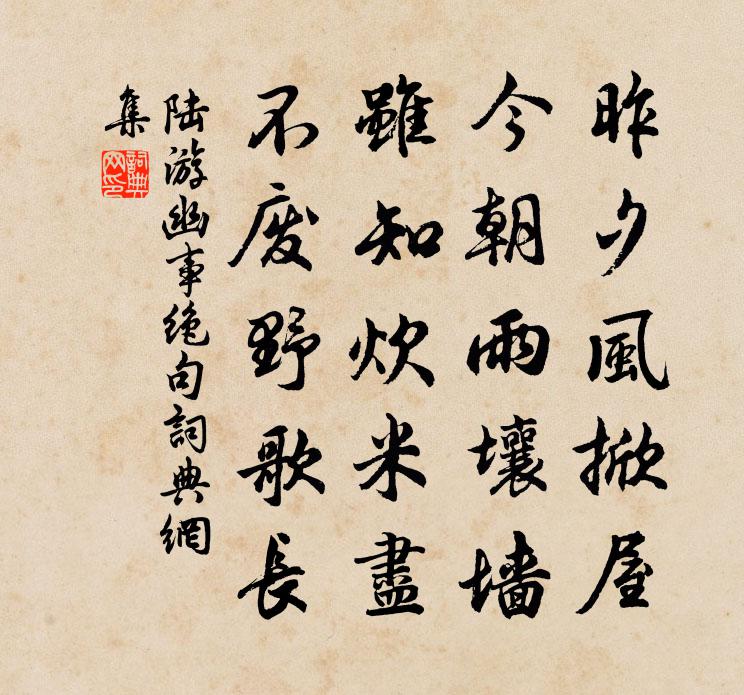 昨夕風掀屋
今朝雨壞墙
雖知炊米盡
不废野歌長
陆游幽事絶句詞典網
集
詞典
网印